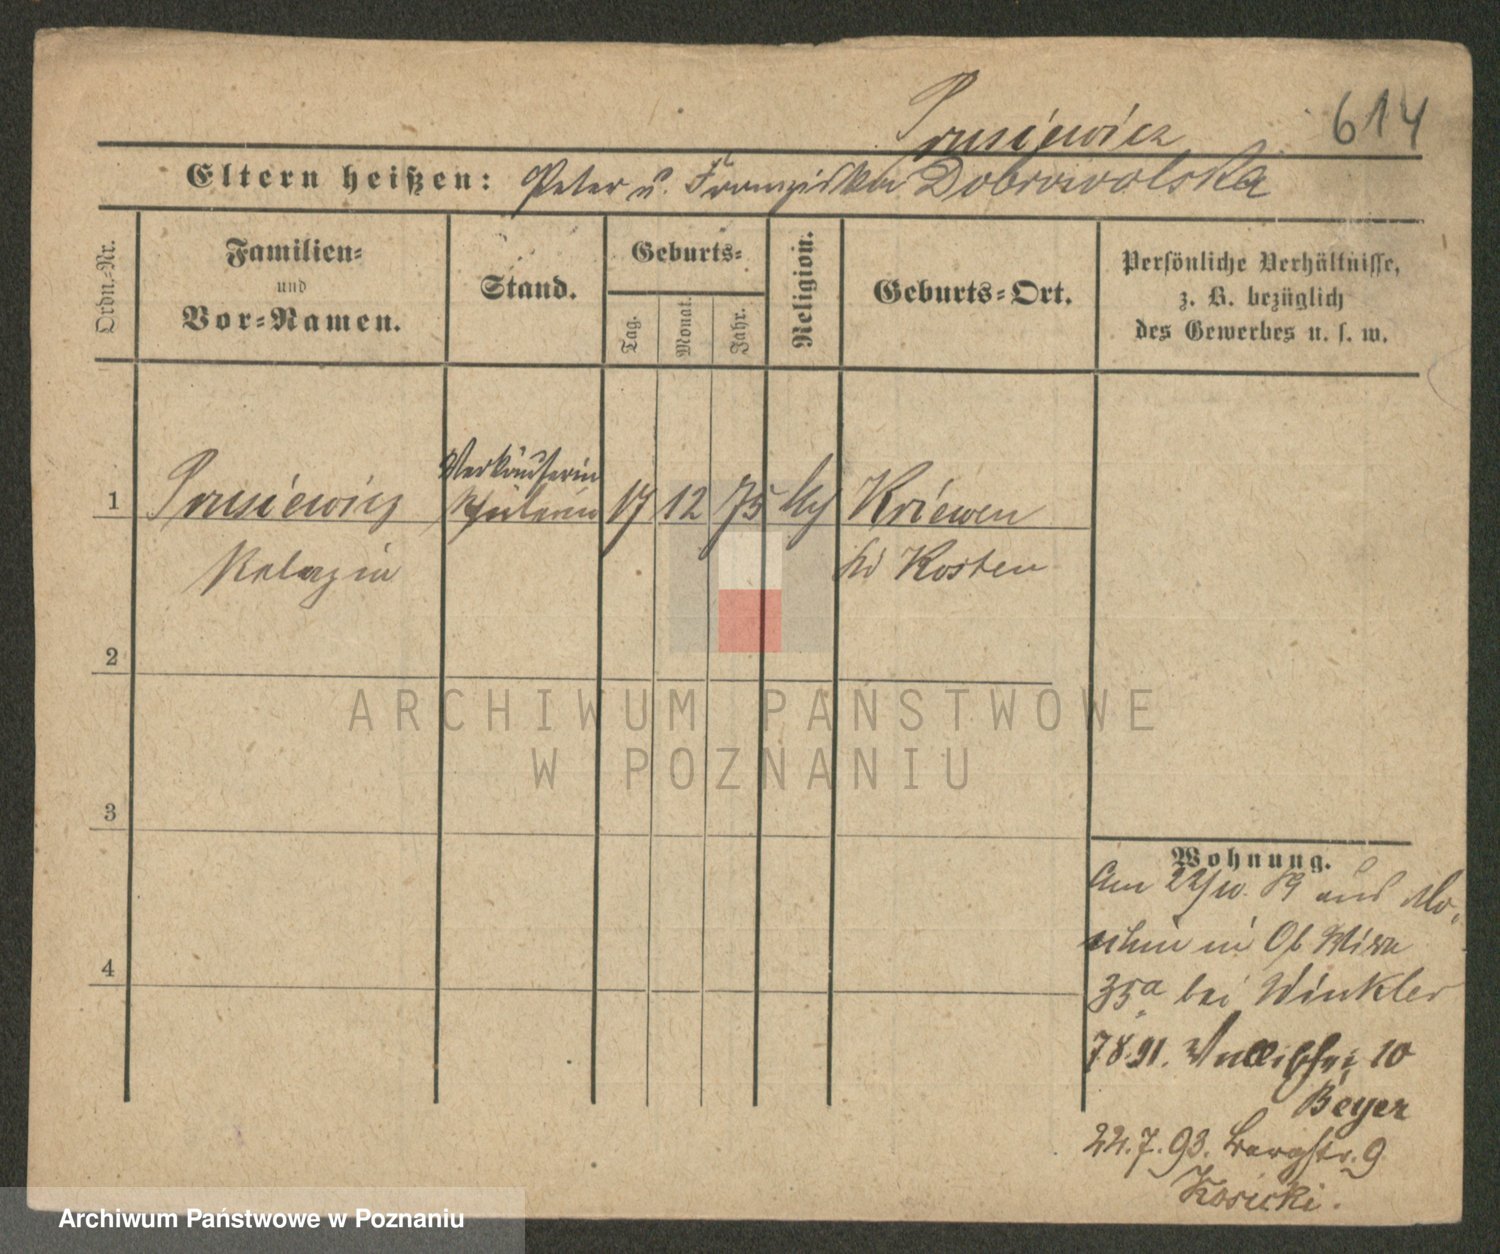 Prusiewicz
614
Eltern heißen: Peter u. Franziska Dobrowolska
Ordn.-Nr.
Familien-
und
Vor-Namen.
Stand.
Geburts-
Tag.
Monat.
Jahr.
Religion.
Geburts-Ort.
Persönliche Verhältnisse,
z. B. bezüglich
des Gewerbes u. s. w.
Verkäuferin
1 Prusiewicz Schülerin 17 12 75 kth Kriewen
Pelagia bei Kosten
2
3
4
Wohnung.
Am 22/10. 89 aus
in Ob Wilda
35a bei Winkler
7 8. 91. 10
Beyer
22.7.93. Bergstr. 9
Kosicki.
ARCHIWUM PAŃSTWOWE
W POZNANIU
Archiwum Państwowe w Poznaniu